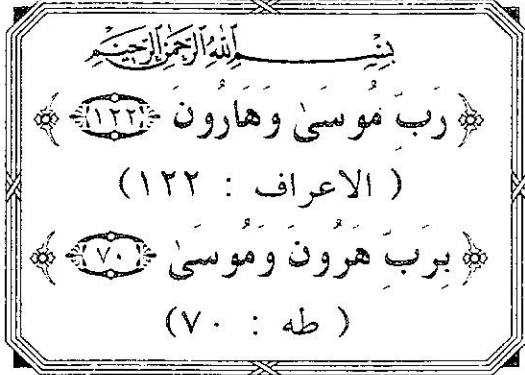 بِسْمِ ٱللَّهِ ٱلرَّحْمَٰنِ ٱلرَّحِيمِ
﴿ رَبِّ مُوسَىٰ وَهَارُونَ ﴿١٢٢﴾ ﴾
( الاعراف : ١٢٢ )
﴿ بِرَبِّ هَٰرُونَ وَمُوسَىٰ ﴿٧٠﴾ ﴾
( طه : ٧٠ )